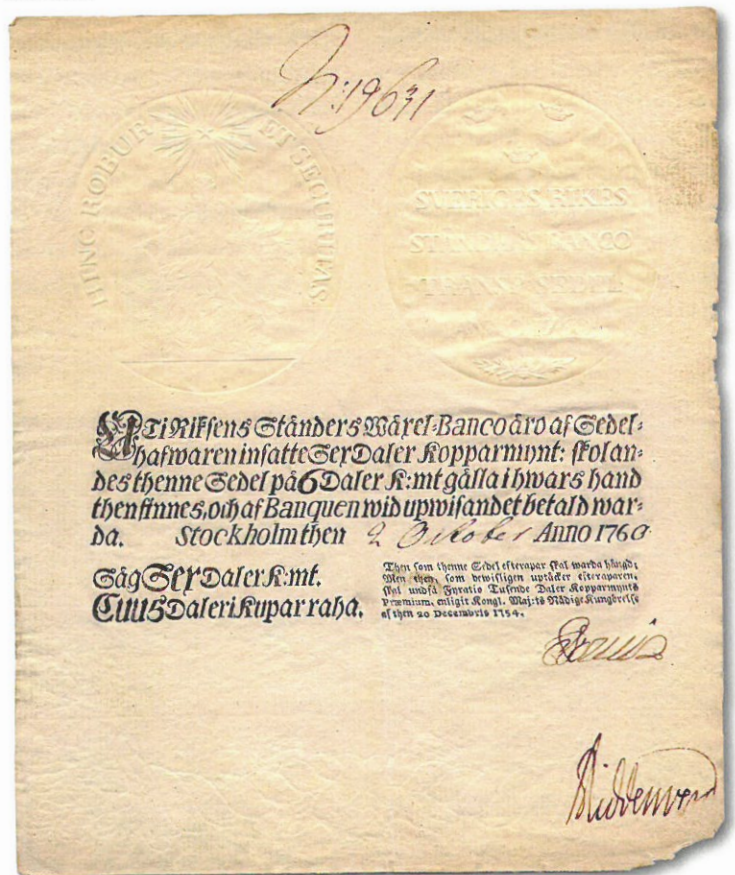 N:19631
HINC ROBUR ET SECURITAS
SVERIGES RIKES
STENDERS BANCO
TRANSP. SEDEL
UTi Riksens Ständers Wäxel-Banco äro af Sedel-
hafwaren insatte Sex Daler Kopparmynt: skolan-
des thenne Sedel på 6 Daler K:mt gälla i hwars hand
then finnes, och af Banquen wid upwisandet betald war-
da. Stockholm then 2 October Anno 1760.
Säg Sex Daler K:mt.
CUUS Daleri Kupar raha.
Then som thenne Sedel efterapar skal warda hängd;
Men then, som bewisligen uptäcker efteraparen,
skal undfå Fyratio Tusende Daler Kopparmynts
Præmium, enligit Kongl. Maj:ts Nådige Kungörelse
af then 20 Decembris 1754.